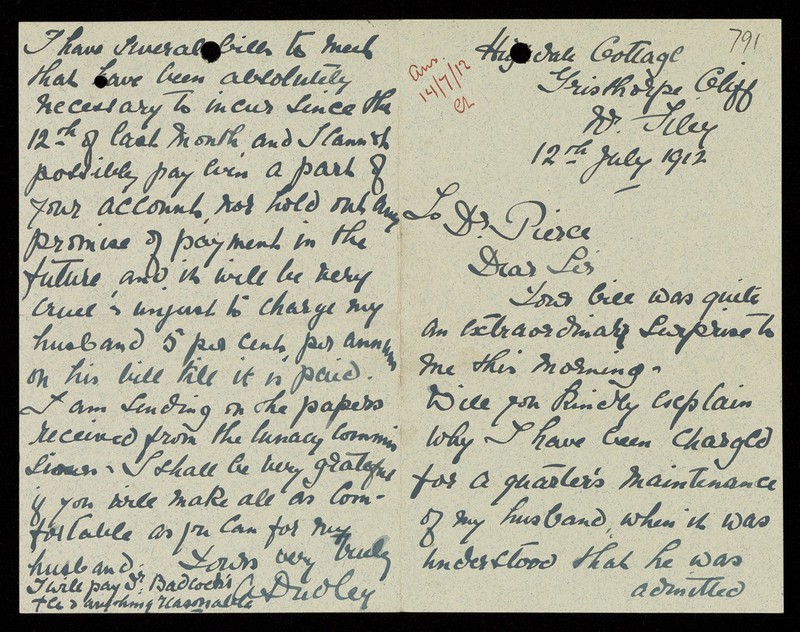 791
Ans.
14/7/12
Cottage
Gristhorpe Cliff
Nr. Filey
12th July 1912
To Dr. Pierce
Dear Sir
Your bill was quite
an extraordinary surprise to
me this morning.
Will you kindly explain
why I have been charged
for a quarter's maintenance
of my husband, when it was
understood that he was
admitted
I have several bills to meet
that have been absolutely
necessary to incur since the
12th of last month and I cannot
possibly pay even a part of
your account, nor hold out any
promise of payment in the
future, and it will be very
cruel & unjust to charge my
husband 5 per cent per annum
on his bill till it is paid.
I am sending on the papers
received from the Lunacy Commis
sioners. I shall be very grateful
if you will make all as com-
fortable as you can for my
husband. Yours very truly
A Dudley
I will pay Dr. Badcock's
fee & anything reasonable